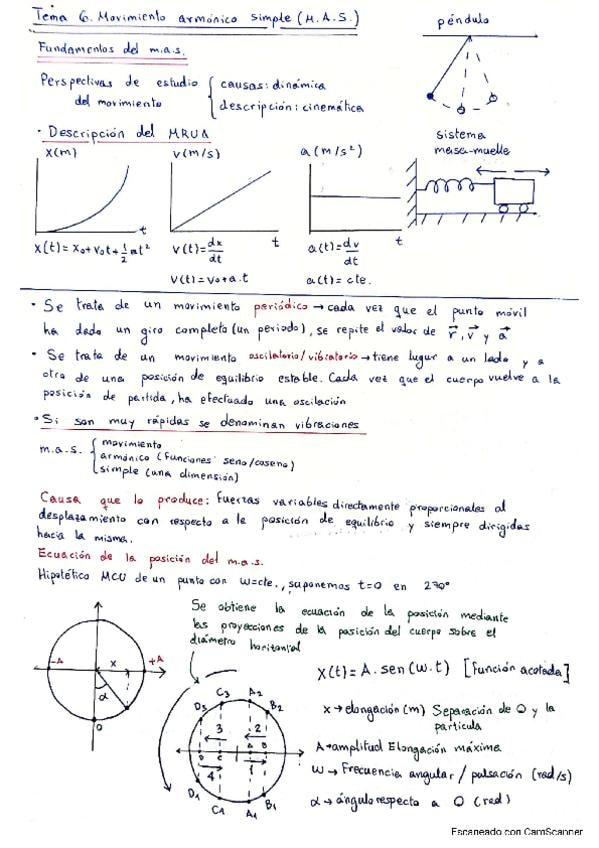 Tema 6. Movimiento armónico simple (M.A.S.)
péndulo
Fundamentos del m.a.s.
Perspectivas de estudio del movimiento
causas: dinámica
descripción: cinemática
• Descripción del MRUA
sistema
masa-muelle
x(m)
v(m/s)
a(m/s²)
t
t
t
x(t)= x₀+v₀t+½at²
v(t)=dx/dt
a(t)=dv/dt
v(t)=v₀+a.t
a(t)= cte.
• Se trata de un movimiento periódico → cada vez que el punto móvil
ha dado un giro completo (un periodo), se repite el valor de r⃗, v⃗ y a⃗
• Se trata de un movimiento oscilatorio/vibratorio → tiene lugar a un lado y a
otro de una posición de equilibrio estable. Cada vez que el cuerpo vuelve a la
posición de partida, ha efectuado una oscilación
• Si son muy rápidas se denominan vibraciones
m.a.s.
movimiento
armónico (funciones seno/coseno)
simple (una dimensión)
Causa que lo produce: Fuerzas variables directamente proporcionales al
desplazamiento con respecto a la posición de equilibrio y siempre dirigidas
hacia la misma.
Ecuación de la posición del m.a.s.
Hipotético MCU de un punto con ω=cte., suponemos t=0 en 270°
Se obtiene la ecuación de la posición mediante
las proyecciones de la posición del cuerpo sobre el
diámetro horizontal
-A
x
+A
α
O
x(t)= A. sen(ω.t) [función acotada]
x → elongación (m) Separación de O y la
partícula
A → amplitud Elongación máxima
ω → Frecuencia angular / pulsación (rad/s)
α → ángulo respecto a O (rad)
C₃ A₂
D₃ B₂
3 2
D C A B
4 1
D₁ B₁
C₁ A₁
Escaneado con CamScanner